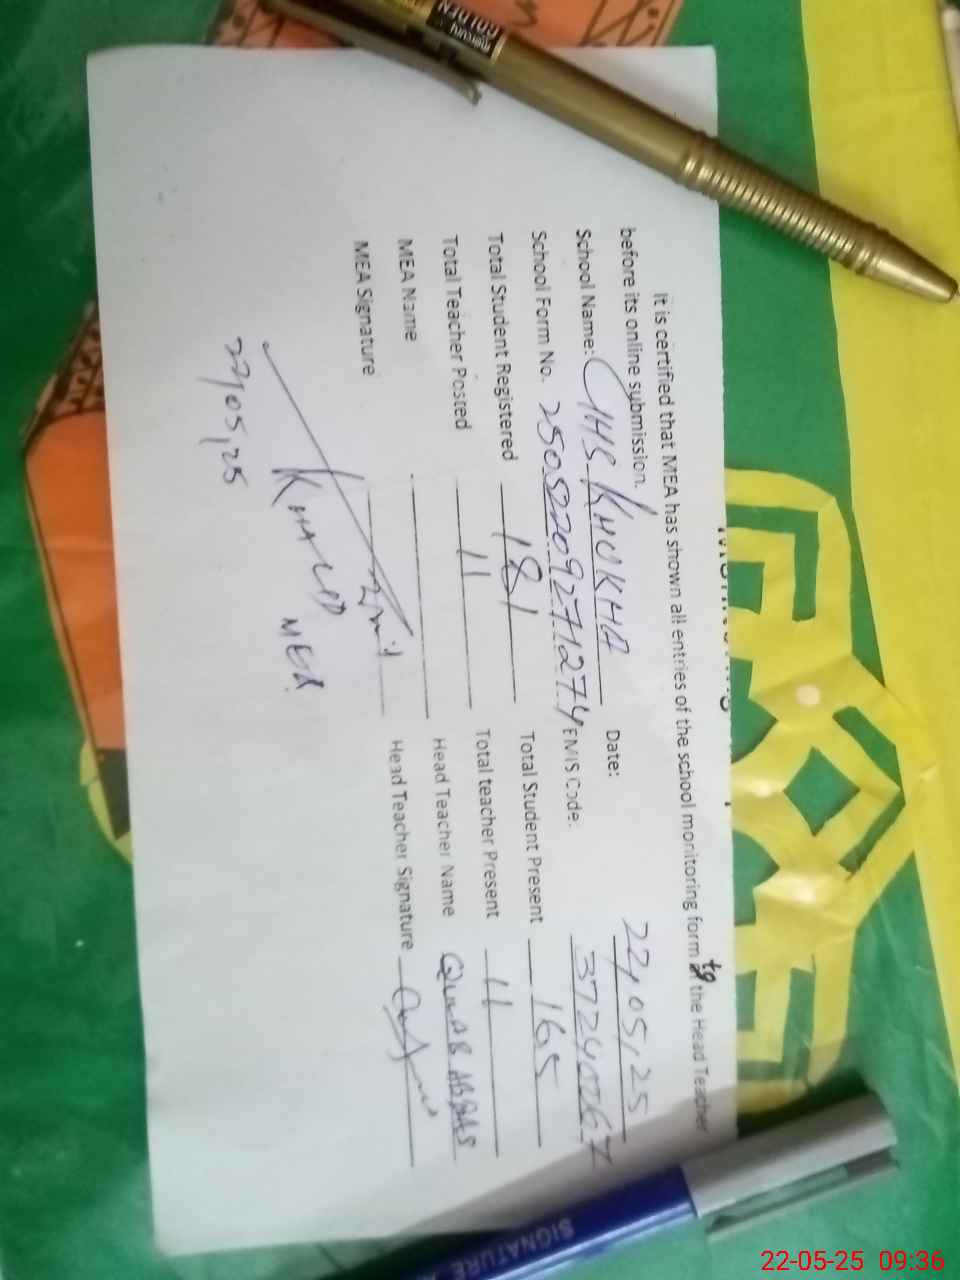 It is certified that MEA has shown all entries of the school monitoring form to the Head Teacher
before its online submission.
School Name: GHS KHOKHA Date: 22/05/25
School Form No. 25052209271274 EMIS Code: 37240267
Total Student Registered 181 Total Student Present 165
Total Teacher Posted 11 Total teacher Present 11
MEA Name Head Teacher Name ABBAS
MEA Signature Head Teacher Signature
KHALID MEA
22/05/25
mercury
GOLDEN
SIGNATURE
22-05-25 09:36